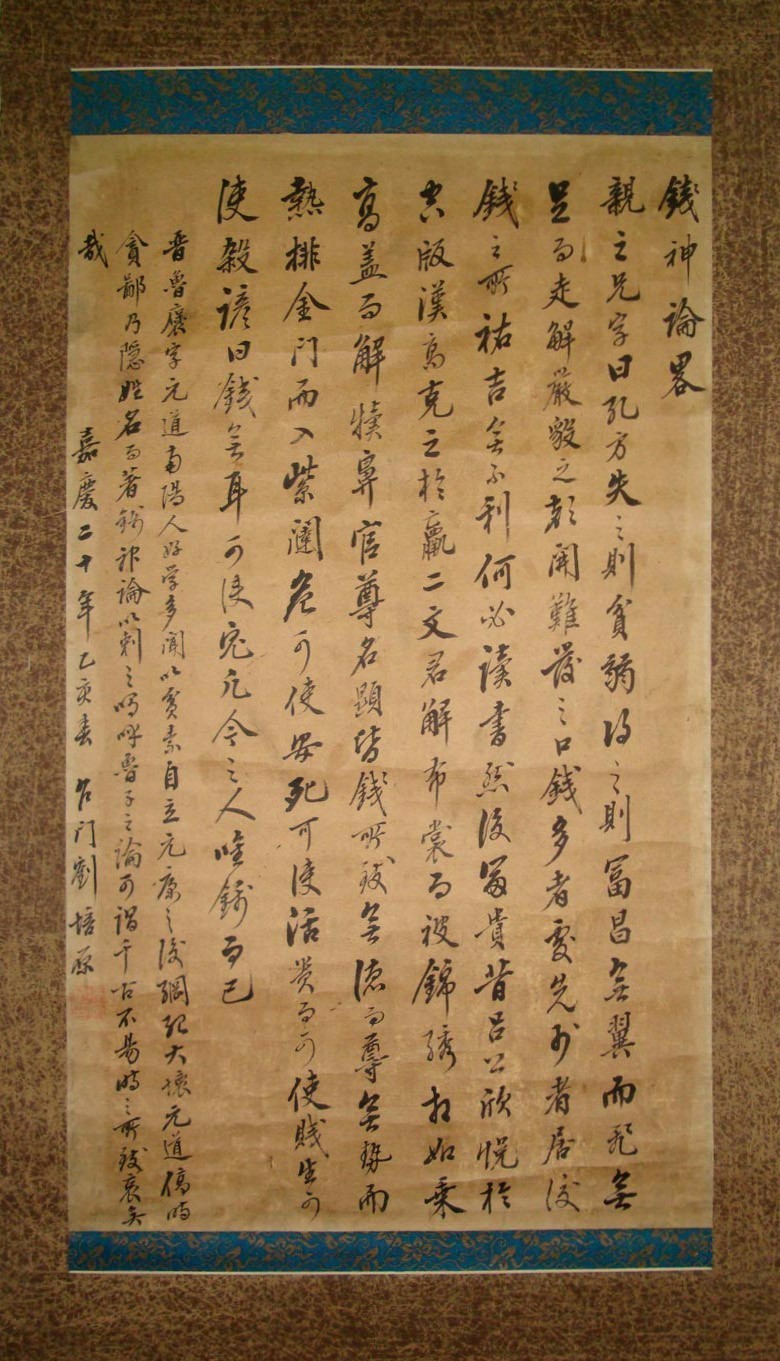 錢神論畧
親之兄字曰孔方失之則貧弱得之則富昌無翼而飛無
足而走解嚴毅之顏開難發之口錢多者處先少者居後
錢之所祐吉無不利何必讀書然後富貴昔呂公欣悅於
空版漢高克之於贏二文君解布裳而被錦繡相如乘
高盖而解犢鼻官尊名顯皆錢所致無德而尊無勢而
熱排金門而入紫闥危可使安死可使活貴而可使賤生可
使殺諺曰錢無耳可使鬼凡今之人唯錢而已
晉魯褒字元道南陽人好學多聞以貧素自立元康之後綱紀大壞元道傷時
貪鄙乃隱姓名而著錢神論以刺之嗚呼魯子之論可謂千古不易時之所致哀矣
哉
嘉慶二十年乙亥春 石門劉培原